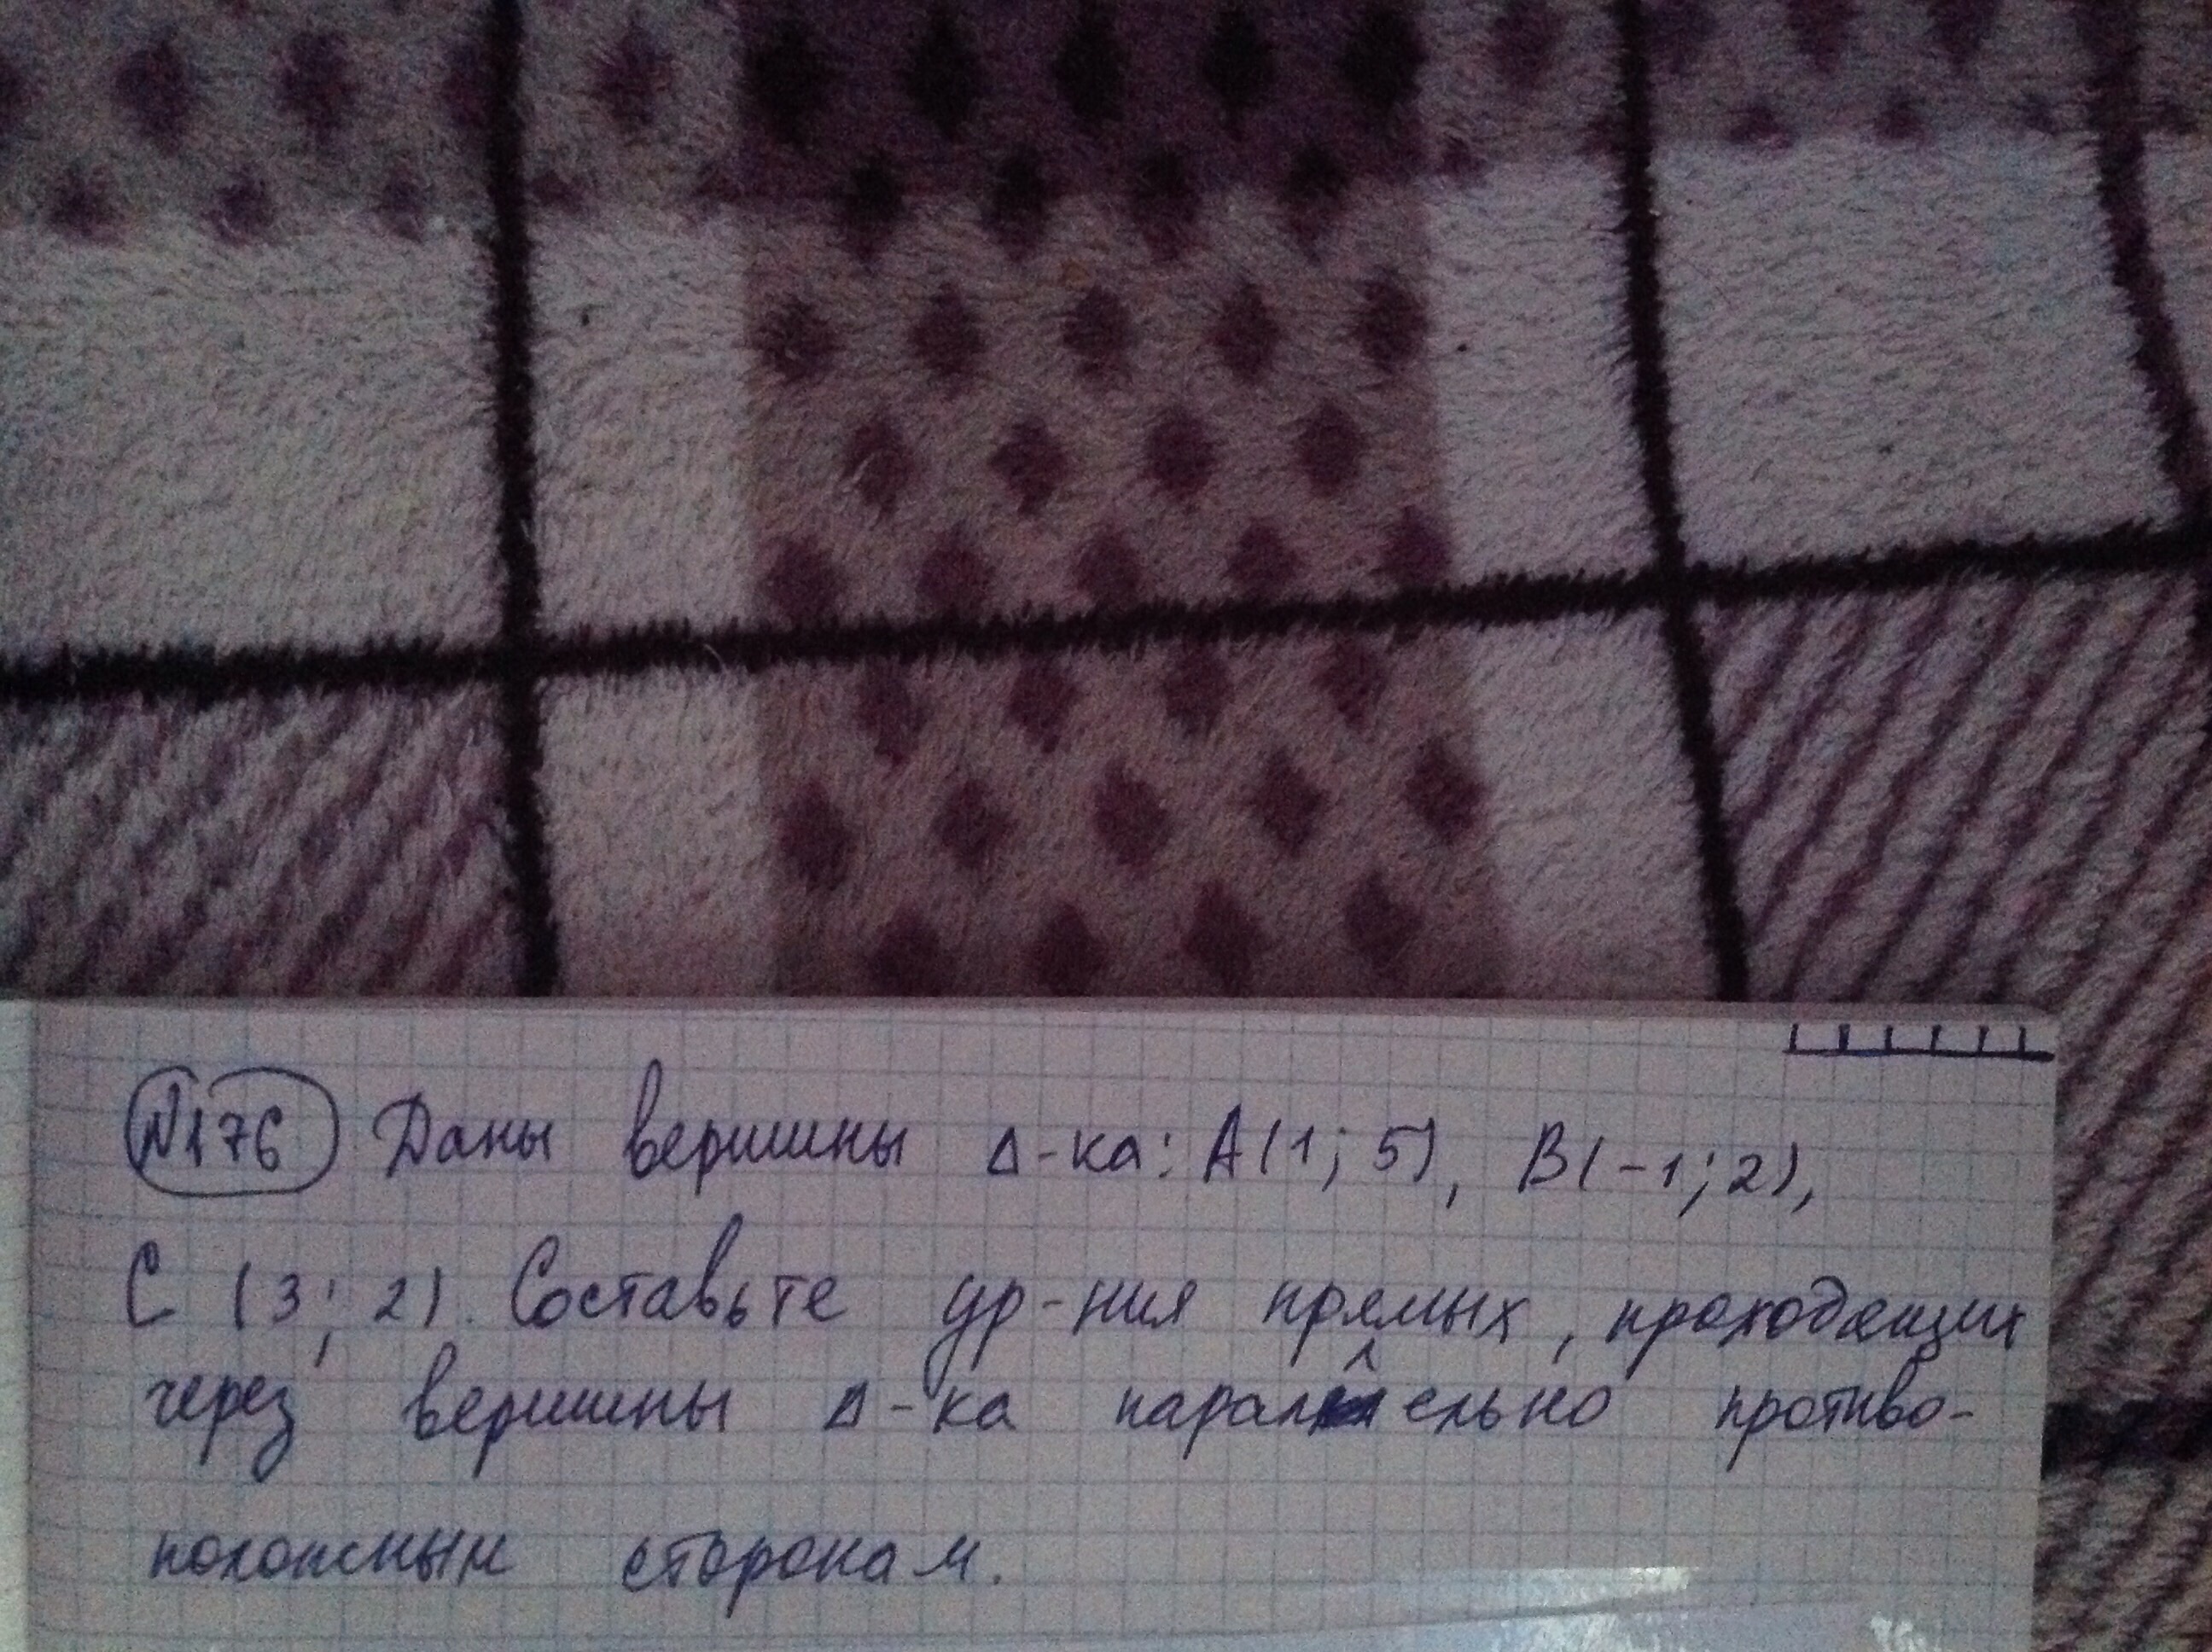 №176 Даны вершины Δ-ка: А(1; 5), В(-1; 2),
С (3; 2). Составьте ур-ния прямых, проходящих
через вершины Δ-ка параллельно противо-
положным сторонам.